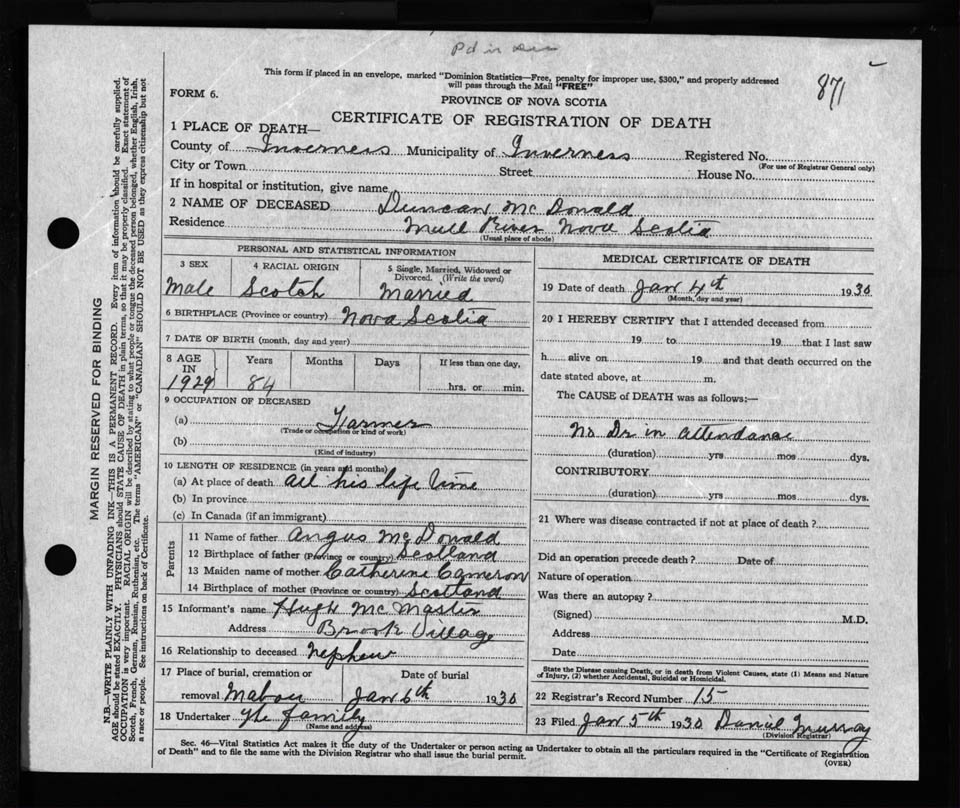 Pd in
871
This form if placed in an envelope, marked "Dominion Statistics—Free, penalty for improper use, $300," and properly addressed
will pass through the Mail "FREE"
FORM 6.
PROVINCE OF NOVA SCOTIA
CERTIFICATE OF REGISTRATION OF DEATH
1 PLACE OF DEATH—
County of Inverness Municipality of Inverness Registered No.
(For use of Registrar General only)
City or Town Street House No.
If in hospital or institution, give name
2 NAME OF DECEASED Duncan McDonald
Residence Mull River Nova Scotia
(Usual place of abode)
PERSONAL AND STATISTICAL INFORMATION
3 SEX 4 RACIAL ORIGIN 5 Single, Married, Widowed or
Divorced. (Write the word)
Male Scotch Married
6 BIRTHPLACE (Province or country) Nova Scotia
7 DATE OF BIRTH (month, day and year)
8 AGE Years Months Days If less than one day,
IN
1929 84 hrs. or min.
9 OCCUPATION OF DECEASED
(a) Farmer
(Trade or occupation or kind of work)
(b)
(Kind of industry)
10 LENGTH OF RESIDENCE (in years and months)
(a) At place of death all his life time
(b) In province
(c) In Canada (if an immigrant)
Parents
11 Name of father Angus McDonald
12 Birthplace of father (Province or country) Scotland
13 Maiden name of mother Catherine Cameron
14 Birthplace of mother (Province or country) Scotland
15 Informant's name Hugh McMaster
Address Brook Village
16 Relationship to deceased nephew
17 Place of burial, cremation or Date of burial
removal Mabou Jan 6th 1930
18 Undertaker the family
(Name and address)
MEDICAL CERTIFICATE OF DEATH
19 Date of death Jan 4th 1930
(Month, day and year)
20 I HEREBY CERTIFY that I attended deceased from
19 to 19 that I last saw
h alive on 19 and that death occurred on the
date stated above, at m.
The CAUSE of DEATH was as follows:—
No Dr in attendance
(duration) yrs mos dys.
CONTRIBUTORY
(duration) yrs mos dys.
21 Where was disease contracted if not at place of death?
Did an operation precede death? Date of
Nature of operation
Was there an autopsy?
(Signed) M.D.
Address
Date
State the Disease causing Death, or in death from Violent Causes, state (1) Means and Nature
of Injury, (2) whether Accidental, Suicidal or Homicidal.
22 Registrar's Record Number 15
23 Filed Jan 5th 1930 Daniel Murray
(Division Registrar)
Sec. 46—Vital Statistics Act makes it the duty of the Undertaker or person acting as Undertaker to obtain all the particulars required in the "Certificate of Registration
of Death" and to file the same with the Division Registrar who shall issue the burial permit.
(OVER)
MARGIN RESERVED FOR BINDING
N.B.—WRITE PLAINLY WITH UNFADING INK—THIS IS A PERMANENT RECORD. Every item of information should be carefully supplied.
AGE should be stated EXACTLY. PHYSICIANS should STATE CAUSE OF DEATH in plain terms, so that it may be properly classified. Exact statement of
OCCUPATION is very important. RACIAL ORIGIN will be described by stating to what people or tongue the deceased person belonged, whether English, Irish,
Scotch, French, German, Russian, Ruthenian, etc. The terms "AMERICAN" or "CANADIAN" SHOULD NOT BE USED as they express citizenship but not
a race or people. See instructions on back of Certificate.